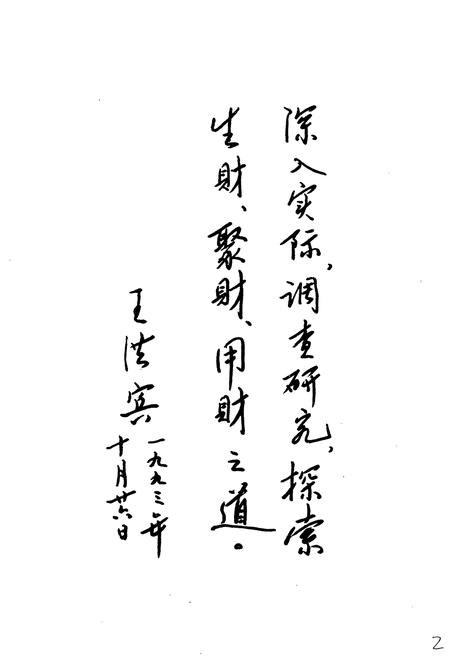 深入实际，调查研究，探索
生财、聚财、用财之道。
王洪宾
一九九三年
十月廿六日
2